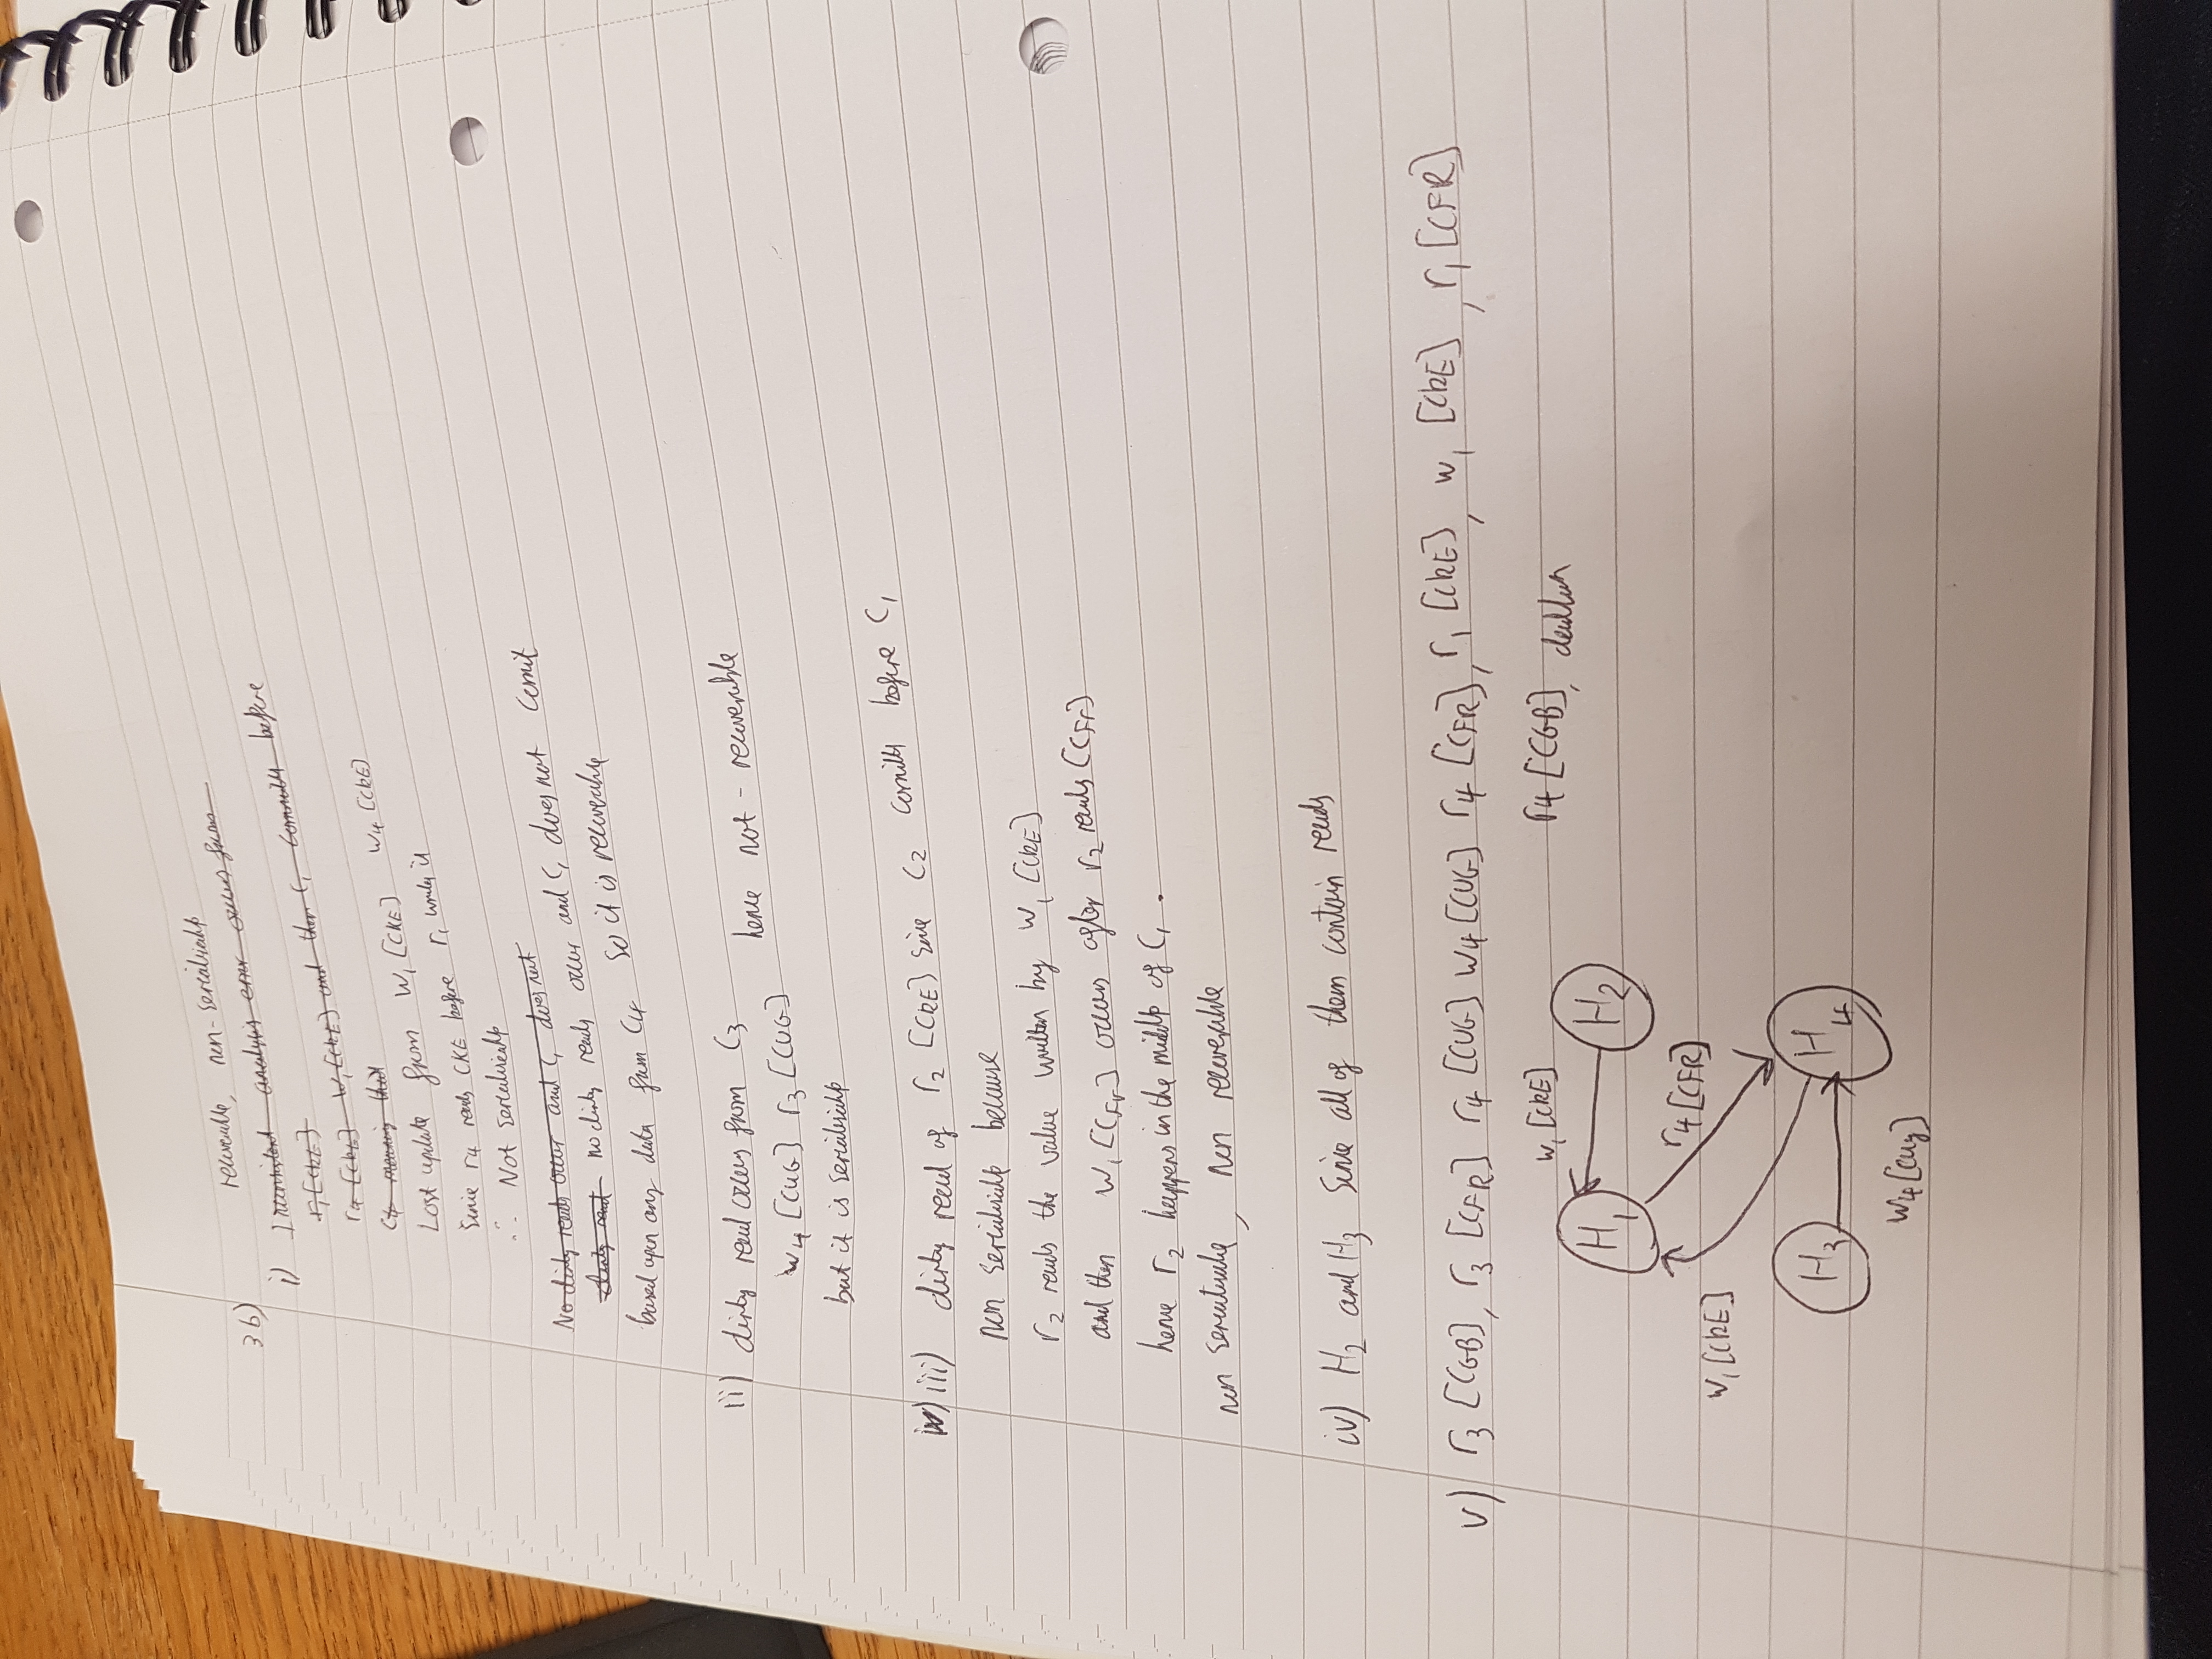 recoverable, non-serialisable
3b)
i) Inconsistent analysis error occurs from
r₁[CKE]
r₄[CKE] w₁[CKE] and then C₁ commits before
C₄ meaning that
Lost update from w₁[CKE] w₄[CKE]
Since r₄ reads CKE before r₁ writes it
∴ Not serialisable
No dirty reads occur and C₁ does not
dirty read no dirty reads occur and C₁ does not comit
based upon any data from C₄ so it is recoverable
ii) dirty read occurs from C₃ hence not-recoverable
w₄[CUG] r₃[CUG]
but it is serialisable
iv) iii) dirty read of r₂[CKE] since C₂ comitts before C₁
non serialisable because
r₂ reads the value written by w₁[CKE]
and then w₁[CFr] occurs after r₂ reads [CFr]
hence r₂ happens in the middle of C₁.
non serialisable, non recoverable
iv) H₂ and H₃ Since all of them contain reads
v) r₃[CGB], r₃[CFR] r₄[CUG] w₄[CUG] r₄[CFR], r₁[CKE], w₁[CKE], r₁[CFR]
r₄[CGB],
w₁[CKE]
H₁ H₂
r₄[CFR]
w₁[CKE]
H₃ H₄
w₄[CUg]